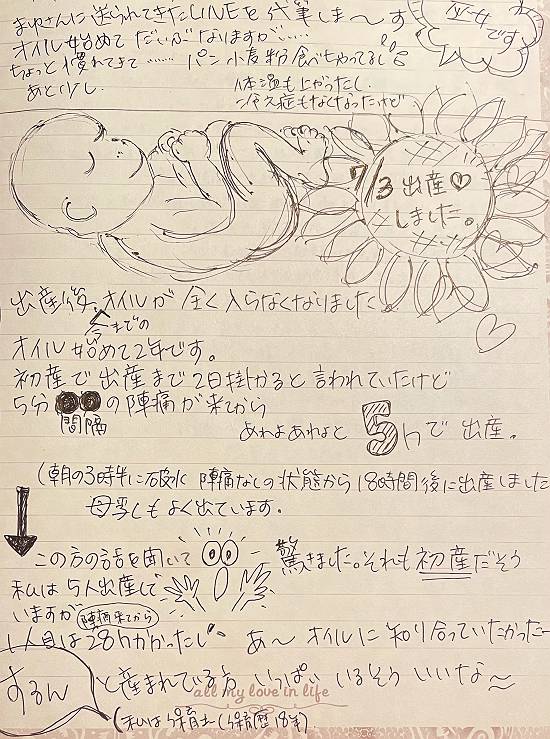 まゆさんに送られてきたLINEを代筆しま〜す
少女です
オイル始めて だいぶなりますが……
ちょっと慣れてきて…… パン 小麦粉食べちゃってるし
あと少し
体温も上がったし
冷え症もなくなったけど
7/3 出産♡
しました。
出産後、オイルが全く入らなくなりました。
今までの
オイル始めて2年です。
初産で出産まで2日掛かると言われていたけど
5分 の陣痛が来てから
間隔
あれよあれよと 5hで出産。
(朝の3時半に破水 陣痛なしの状態から18時間後に出産しました
母乳もよく出ています。
この方の話を聞いて 驚きました。それも初産だそう
私は5人出産して
いますが 陣痛来てから
1人目は28hかかったし あ〜オイルに知り合っていたかった〜
するん と産まれてる方 いっぱいいるそう いいな〜
all my love in life
(私は保育士(保育歴18年)